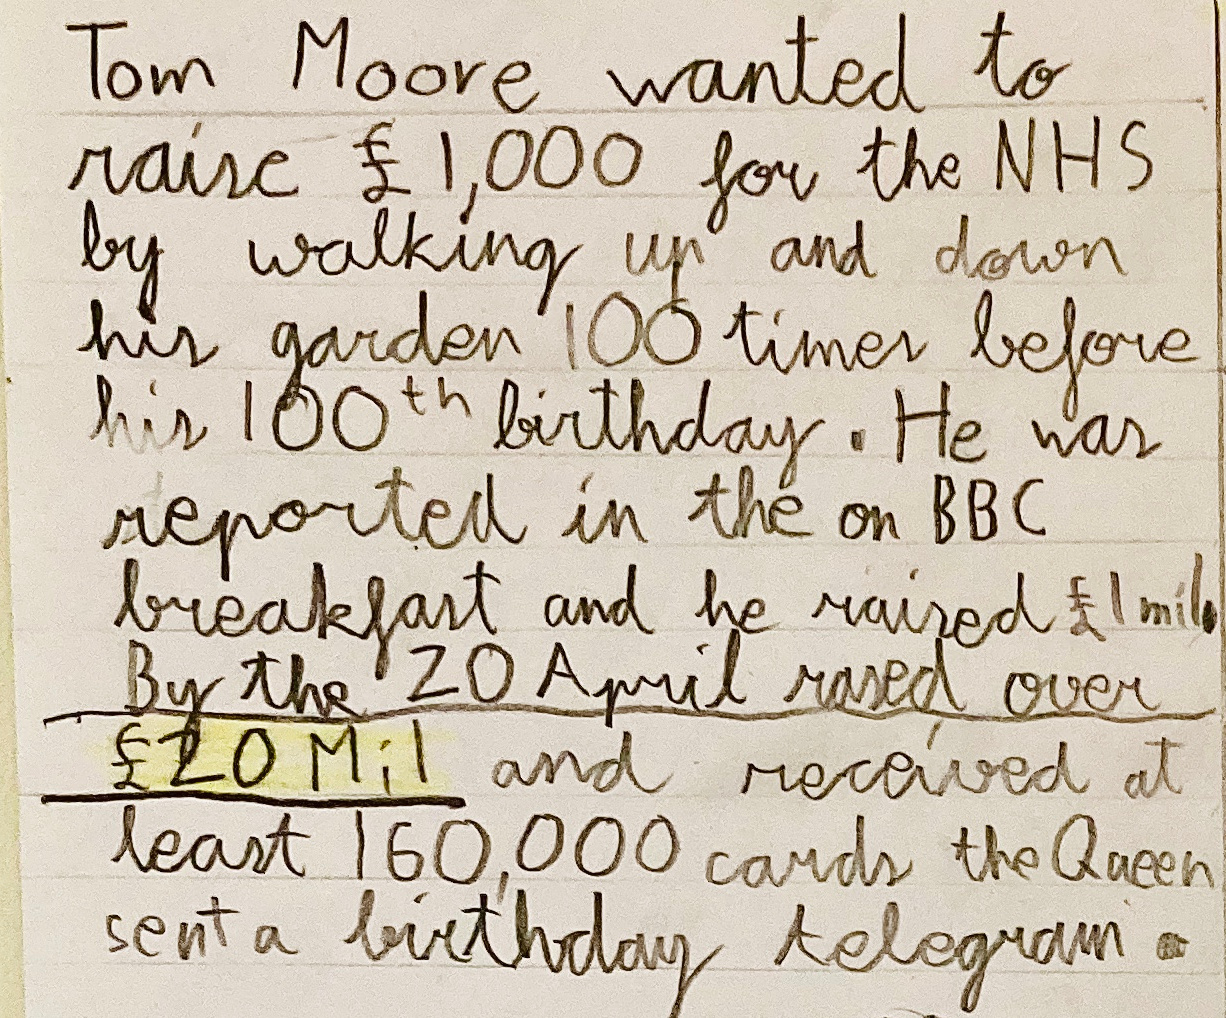 Tom Moore wanted to
raise £1,000 for the NHS
by walking up and down
his garden 100 times before
his 100th birthday. He was
reported in the on BBC
breakfast and he raised £1 mil.
By the 20 April rased over
£20 Mil and received at
least 160,000 cards the Queen
sent a birthday telegram.